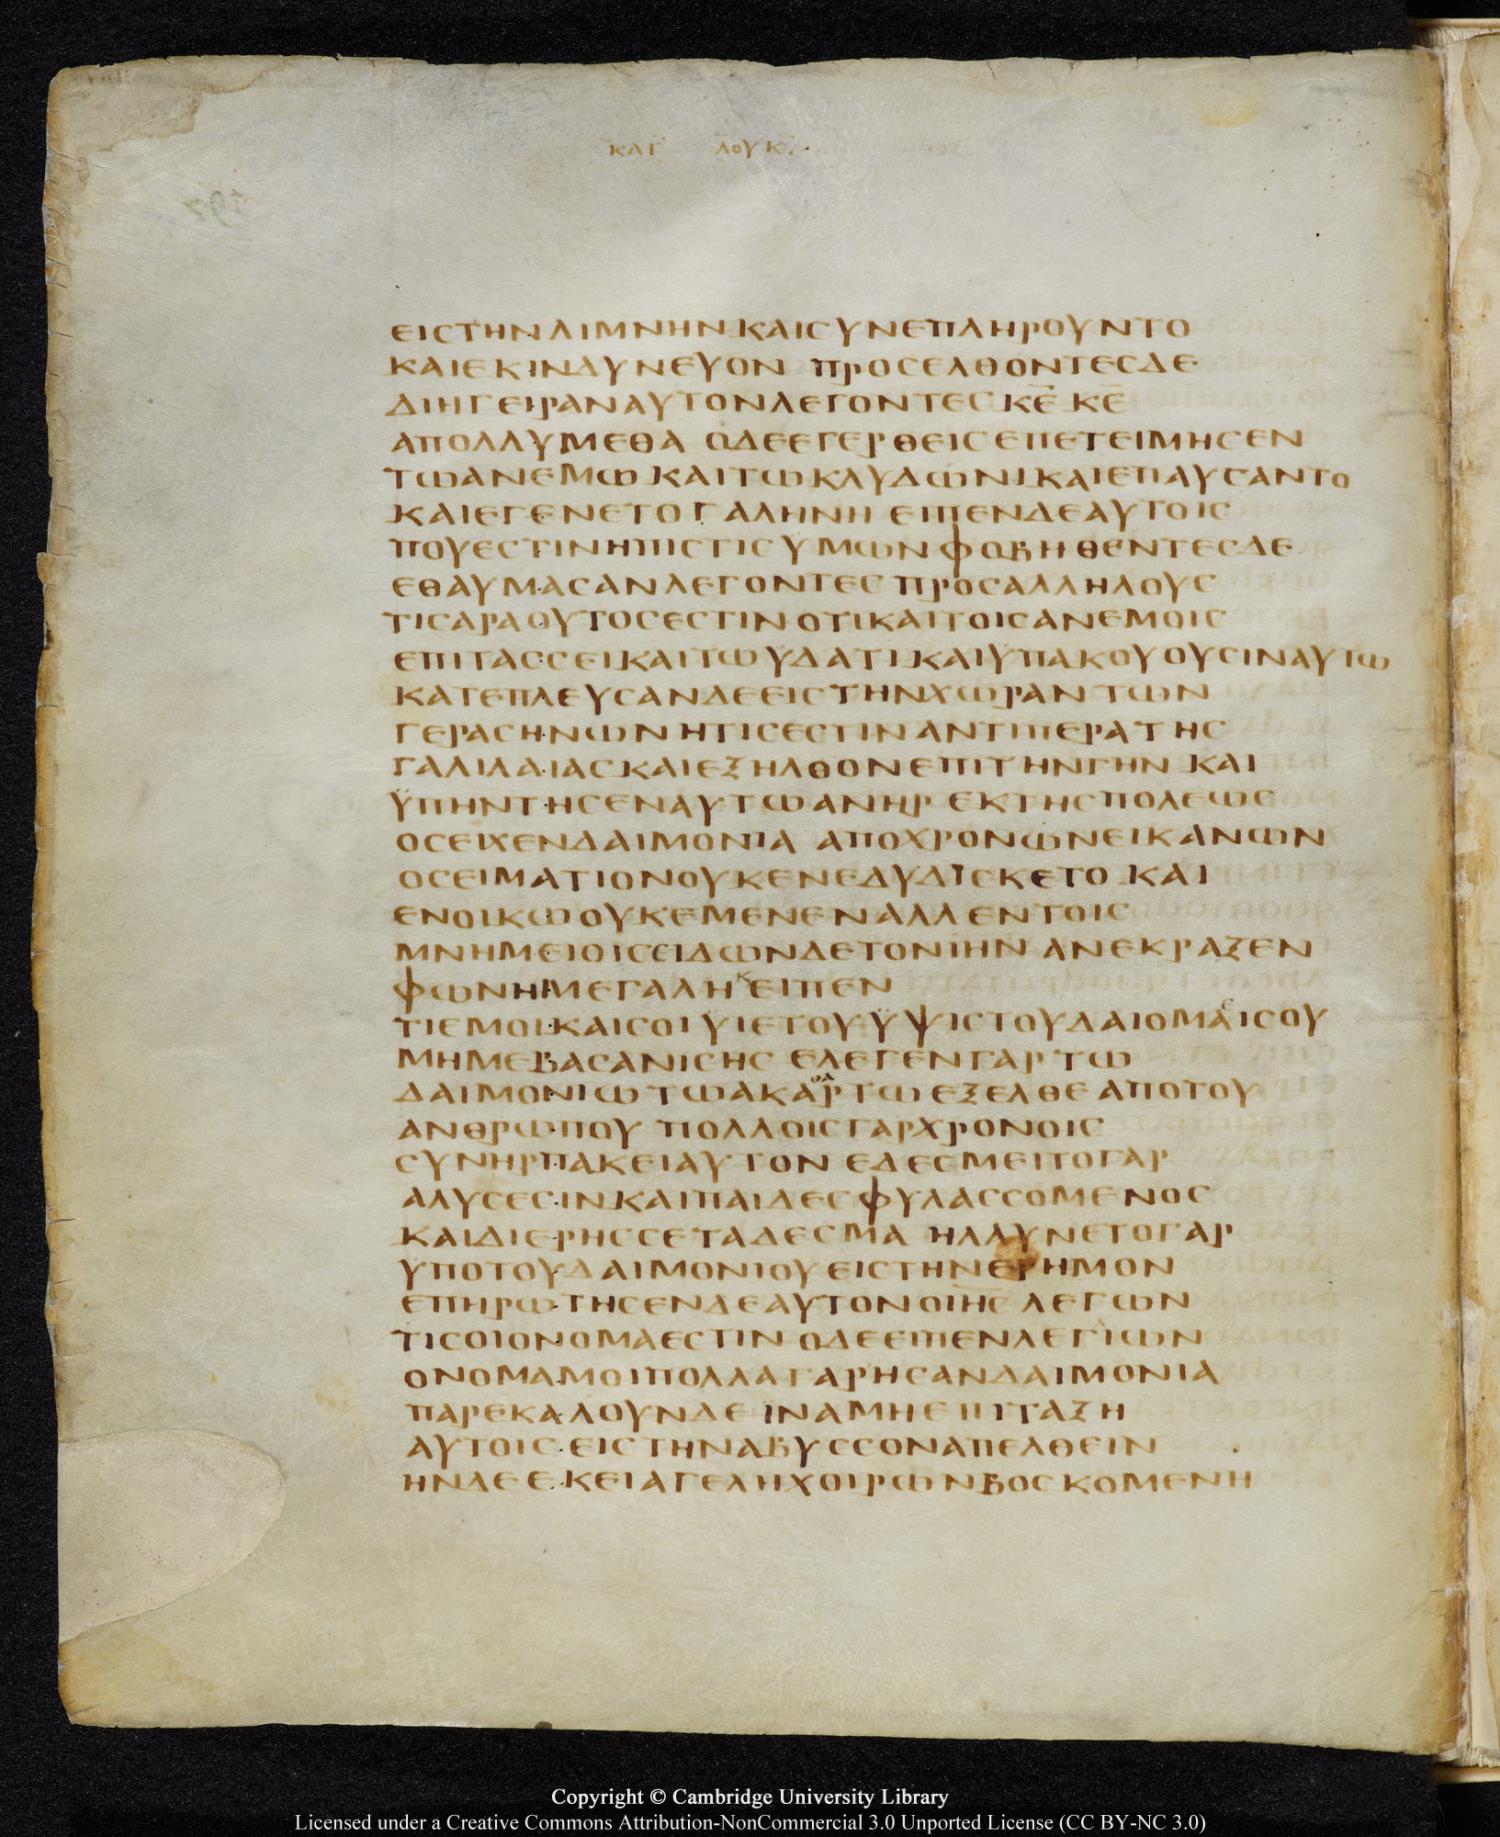 ΚΑΤ ΛΟΥΚ
ΕΙϹΤΗΝΛΙΜΝΗΝΚΑΙϹΥΝΕΠΛΗΡΟΥΝΤΟ
ΚΑΙΕΚΙΝΔΥΝΕΥΟΝ ΠΡΟϹΕΛΘΟΝΤΕϹΔΕ
ΔΙΗΓΕΙΡΑΝΑΥΤΟΝΛΕΓΟΝΤΕϹ Κ̅Ε̅ Κ̅Ε̅
ΑΠΟΛΛΥΜΕΘΑ ΟΔΕΕΓΕΡΘΕΙϹΕΠΕΤΕΙΜΗϹΕΝ
ΤΩΑΝΕΜΩΚΑΙΤΩΚΛΥΔΩΝΙΚΑΙΕΠΑΥϹΑΝΤΟ
ΚΑΙΕΓΕΝΕΤΟΓΑΛΗΝΗ ΕΙΠΕΝΔΕΑΥΤΟΙϹ
ΠΟΥΕϹΤΙΝΗΠΙϹΤΙϹΥΜΩΝΦΟΒΗΘΕΝΤΕϹΔΕ
ΕΘΑΥΜΑϹΑΝΛΕΓΟΝΤΕϹ ΠΡΟϹΑΛΛΗΛΟΥϹ
ΤΙϹΑΡΑΟΥΤΟϹΕϹΤΙΝ ΟΤΙΚΑΙΤΟΙϹΑΝΕΜΟΙϹ
ΕΠΙΤΑϹϹΕΙΚΑΙΤΩΥΔΑΤΙΚΑΙΥΠΑΚΟΥΟΥϹΙΝΑΥΤΩ
ΚΑΤΕΠΛΕΥϹΑΝΔΕΕΙϹΤΗΝΧΩΡΑΝΤΩΝ
ΓΕΡΑϹΗΝΩΝΗΤΙϹΕϹΤΙΝΑΝΤΙΠΕΡΑΤΗϹ
ΓΑΛΙΛΑΙΑϹΚΑΙΕΞΗΛΘΟΝΕΠΙΤΗΝΓΗΝ ΚΑΙ
ΥΠΗΝΤΗϹΕΝΑΥΤΩΑΝΗΡ ΕΚΤΗϹΠΟΛΕΩϹ
ΟϹΕΙΧΕΝΔΑΙΜΟΝΙΑ ΑΠΟΧΡΟΝΩΝΕΙΚΑΝΩΝ
ΟϹΕΙΜΑΤΙΟΝΟΥΚΕΝΕΔΥΔΙϹΚΕΤΟ ΚΑΙ
ΕΝΟΙΚΩΟΥΚΕΜΕΝΕΝΑΛΛΕΝΤΟΙϹ
ΜΝΗΜΕΙΟΙϹΕΙΔΩΝΔΕΤΟΝΙΗΝ ΑΝΕΚΡΑΞΕΝ
ΦΩΝΗΜΕΓΑΛΗ ΚΕΙΠΕΝ
ΤΙΕΜΟΙΚΑΙϹΟΙΥΙΕΤΟΥΥΨΙϹΤΟΥΔΑΙΟΜΑΕΙϹΟΥ
ΜΗΜΕΒΑϹΑΝΙϹΗϹ ΕΛΕΓΕΝΓΑΡΤΩ
ΔΑΙΜΟΝΙΩΤΩΑΚΑΘΑΡΤΩΕΞΕΛΘΕΑΠΟΤΟΥ
ΑΝΘΡΩΠΟΥ ΠΟΛΛΟΙϹΓΑΡΧΡΟΝΟΙϹ
ϹΥΝΗΡΠΑΚΕΙΑΥΤΟΝ ΕΔΕϹΜΕΙΤΟΓΑΡ
ΑΛΥϹΕϹΙΝΚΑΙΠΑΙΔΕϹΦΥΛΑϹϹΟΜΕΝΟϹ
ΚΑΙΔΙΕΡΗϹϹΕΤΑΔΕϹΜΑ ΗΛΑΥΝΕΤΟΓΑΡ
ΥΠΟΤΟΥΔΑΙΜΟΝΙΟΥΕΙϹΤΗΝΕΡΗΜΟΝ
ΕΠΗΡΩΤΗϹΕΝΔΕΑΥΤΟΝΟΙΗϹ ΛΕΓΩΝ
ΤΙϹΟΙΟΝΟΜΑΕϹΤΙΝ ΟΔΕΕΙΠΕΝΛΕΓΙΩΝ
ΟΝΟΜΑΜΟΙΠΟΛΛΑΓΑΡΗϹΑΝΔΑΙΜΟΝΙΑ
ΠΑΡΕΚΑΛΟΥΝΔΕ ΙΝΑΜΗΕΠΙΤΑΞΗ
ΑΥΤΟΙϹΕΙϹΤΗΝΑΒΥϹϹΟΝΑΠΕΛΘΕΙΝ
ΗΝΔΕΕΚΕΙΑΓΕΛΗΧΟΙΡΩΝΒΟϹΚΟΜΕΝΗ
Copyright © Cambridge University Library
Licensed under a Creative Commons Attribution-NonCommercial 3.0 Unported License (CC BY-NC 3.0)